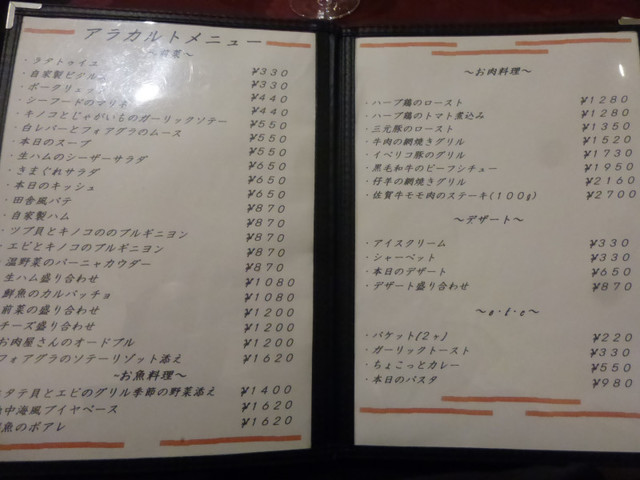 アラカルトメニュー
～前菜～
・ラタトゥイユ ¥330
・自家製ピクルス ¥330
・ポークリエット ¥440
・シーフードのマリネ ¥440
・キノコとじゃがいものガーリックソテー ¥550
・白レバーとフォアグラのムース ¥550
・本日のスープ ¥550
・生ハムのシーザーサラダ ¥650
・きまぐれサラダ ¥650
・本日のキッシュ ¥650
・田舎風パテ ¥870
・自家製ハム ¥870
・ツブ貝とキノコののブルギニヨン ¥870
・エビとキノコのブルギニヨン ¥870
・温野菜のバーニャカウダー ¥870
生ハム盛り合わせ ¥1080
鮮魚のカルパッチョ ¥1080
前菜の盛り合わせ ¥1200
チーズ盛り合わせ ¥1200
お肉屋さんのオードブル ¥1200
フォアグラのソテーリゾット添え ¥1620
～お魚料理～
タテ貝とエビのグリル季節の野菜添え ¥1400
中海風ブイヤベース ¥1620
魚のポアレ ¥1620
～お肉料理～
・ハーブ鶏のロースト ¥1280
・ハーブ鶏のトマト煮込み ¥1280
・三元豚のロースト ¥1350
・牛肉の網焼きグリル ¥1520
・イベリコ豚のグリル ¥1730
・黒毛和牛のビーフシチュー ¥1950
・仔羊の網焼きグリル ¥2160
・佐賀牛モモ肉のステーキ(100g) ¥2700
～デザート～
・アイスクリーム ¥330
・シャーベット ¥330
・本日のデザート ¥650
・デザート盛り合わせ ¥870
～e・t・c～
・バケット(2ヶ) ¥220
・ガーリックトースト ¥330
・ちょこっとカレー ¥550
・本日のパスタ ¥980